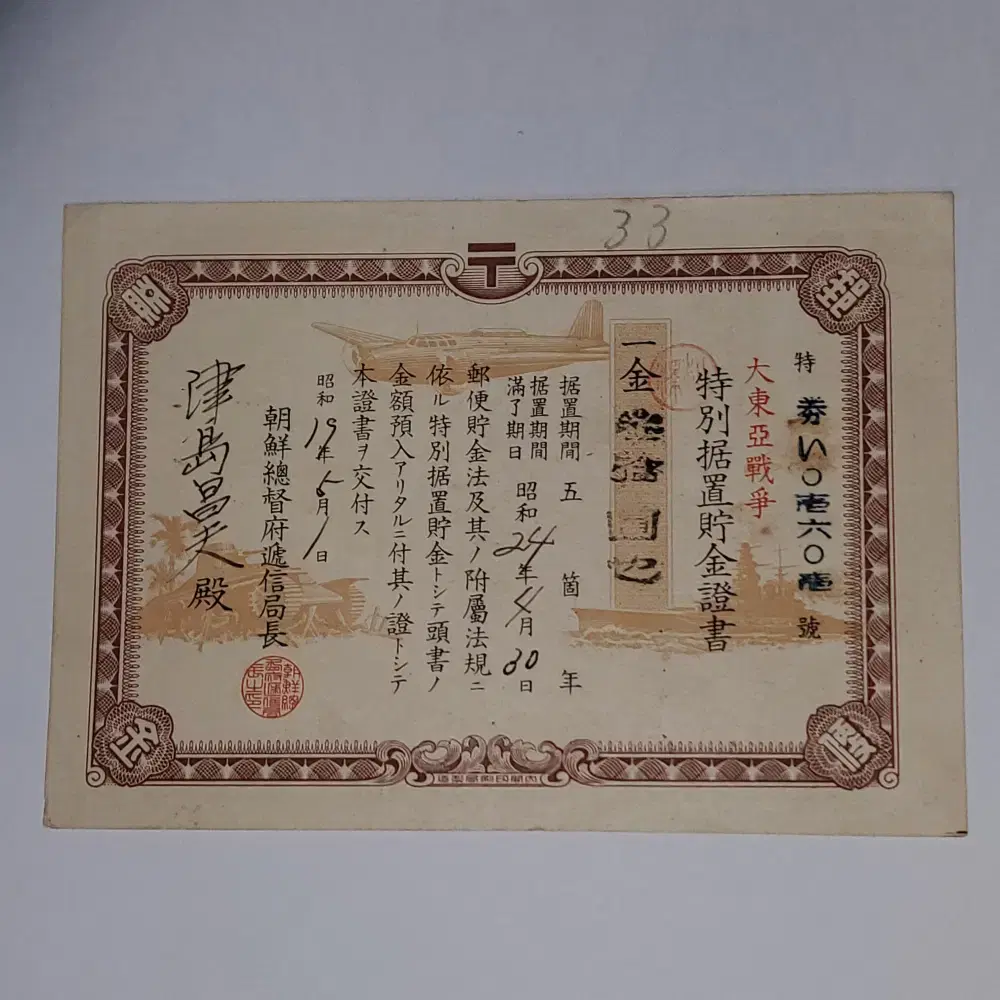 33
〒
特 券い〇壱六〇 號
大東亞戰爭
特別据置貯金證書
一金 拾圓也
据置期間 五箇年
据置期間滿了期日 昭和24年4月30日
郵便貯金法及其ノ附屬法規ニ
依ル特別据置貯金トシテ頭書ノ
金額預入アリタルニ付其ノ證トシテ
本證書ヲ交付ス
昭和19年5月1日
朝鮮總督府遞信局長
津島昌夫殿
造製局刷印閣內